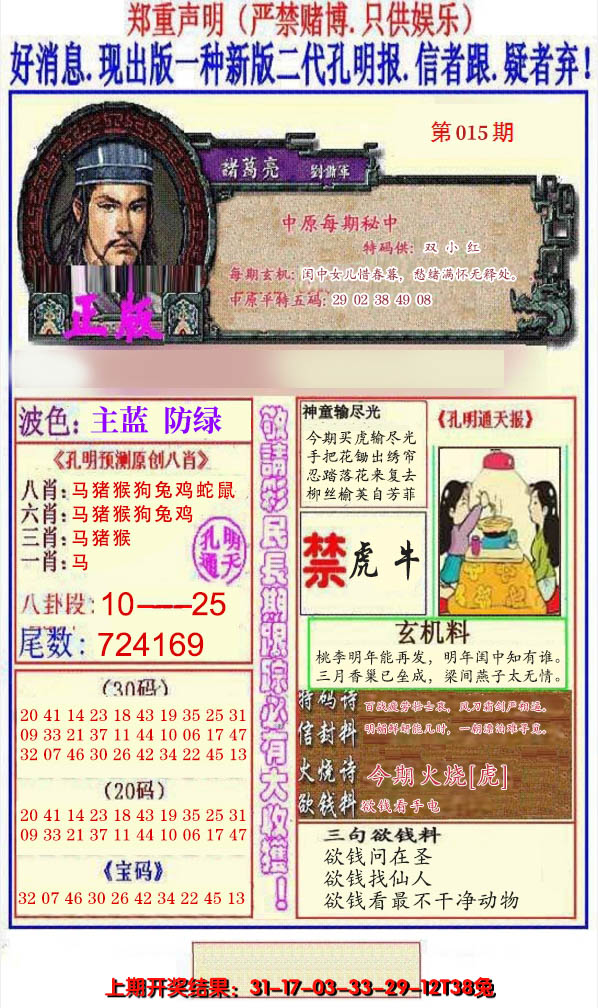 郑重声明（严禁赌博.只供娱乐）
好消息.现出版一种新版二代孔明报.信者跟.疑者弃！
第015期
諸葛亮
中原每期秘中
特码供：双 小 红
每期玄机：闺中女儿惜春暮，愁绪满怀无释处。
中原平特五码：29 02 38 49 08
正版
波色：主蓝 防绿
《孔明预测原创八肖》
八肖：马猪猴狗兔鸡蛇鼠
六肖：马猪猴狗兔鸡
三肖：马猪猴
一肖：马
孔明
通天
八卦段：10——25
尾数：724169
（30码）
20 41 14 23 18 43 19 35 25 31
09 33 21 37 11 44 10 06 17 47
32 07 46 30 26 42 34 22 45 13
（20码）
20 41 14 23 18 43 19 35 25 31
09 33 21 37 11 44 10 06 17 47
《宝码》
32 07 46 30 26 42 34 22 45 13
敬請彩民長期跟踪必有大收獲！
神童输尽光
今期买虎输尽光
手把花锄出绣帘
忍踏落花来复去
柳丝榆荚自芳菲
《孔明通天报》
禁 虎 牛
玄机料
桃李明年能再发，明年闺中知有谁。
三月香巢已垒成，梁间燕子太无情。
特码诗 百战疲劳壮士哀，风刀霜剑严相逼。
信封料 明媚鲜妍能几时，一朝漂泊难寻觅。
火烧诗 今期火烧[虎]
欲钱料 欲钱看手电
三句欲钱料
欲钱问在圣
欲钱找仙人
欲钱看最不干净动物
上期开奖结果：31-17-03-33-29-12T38兔